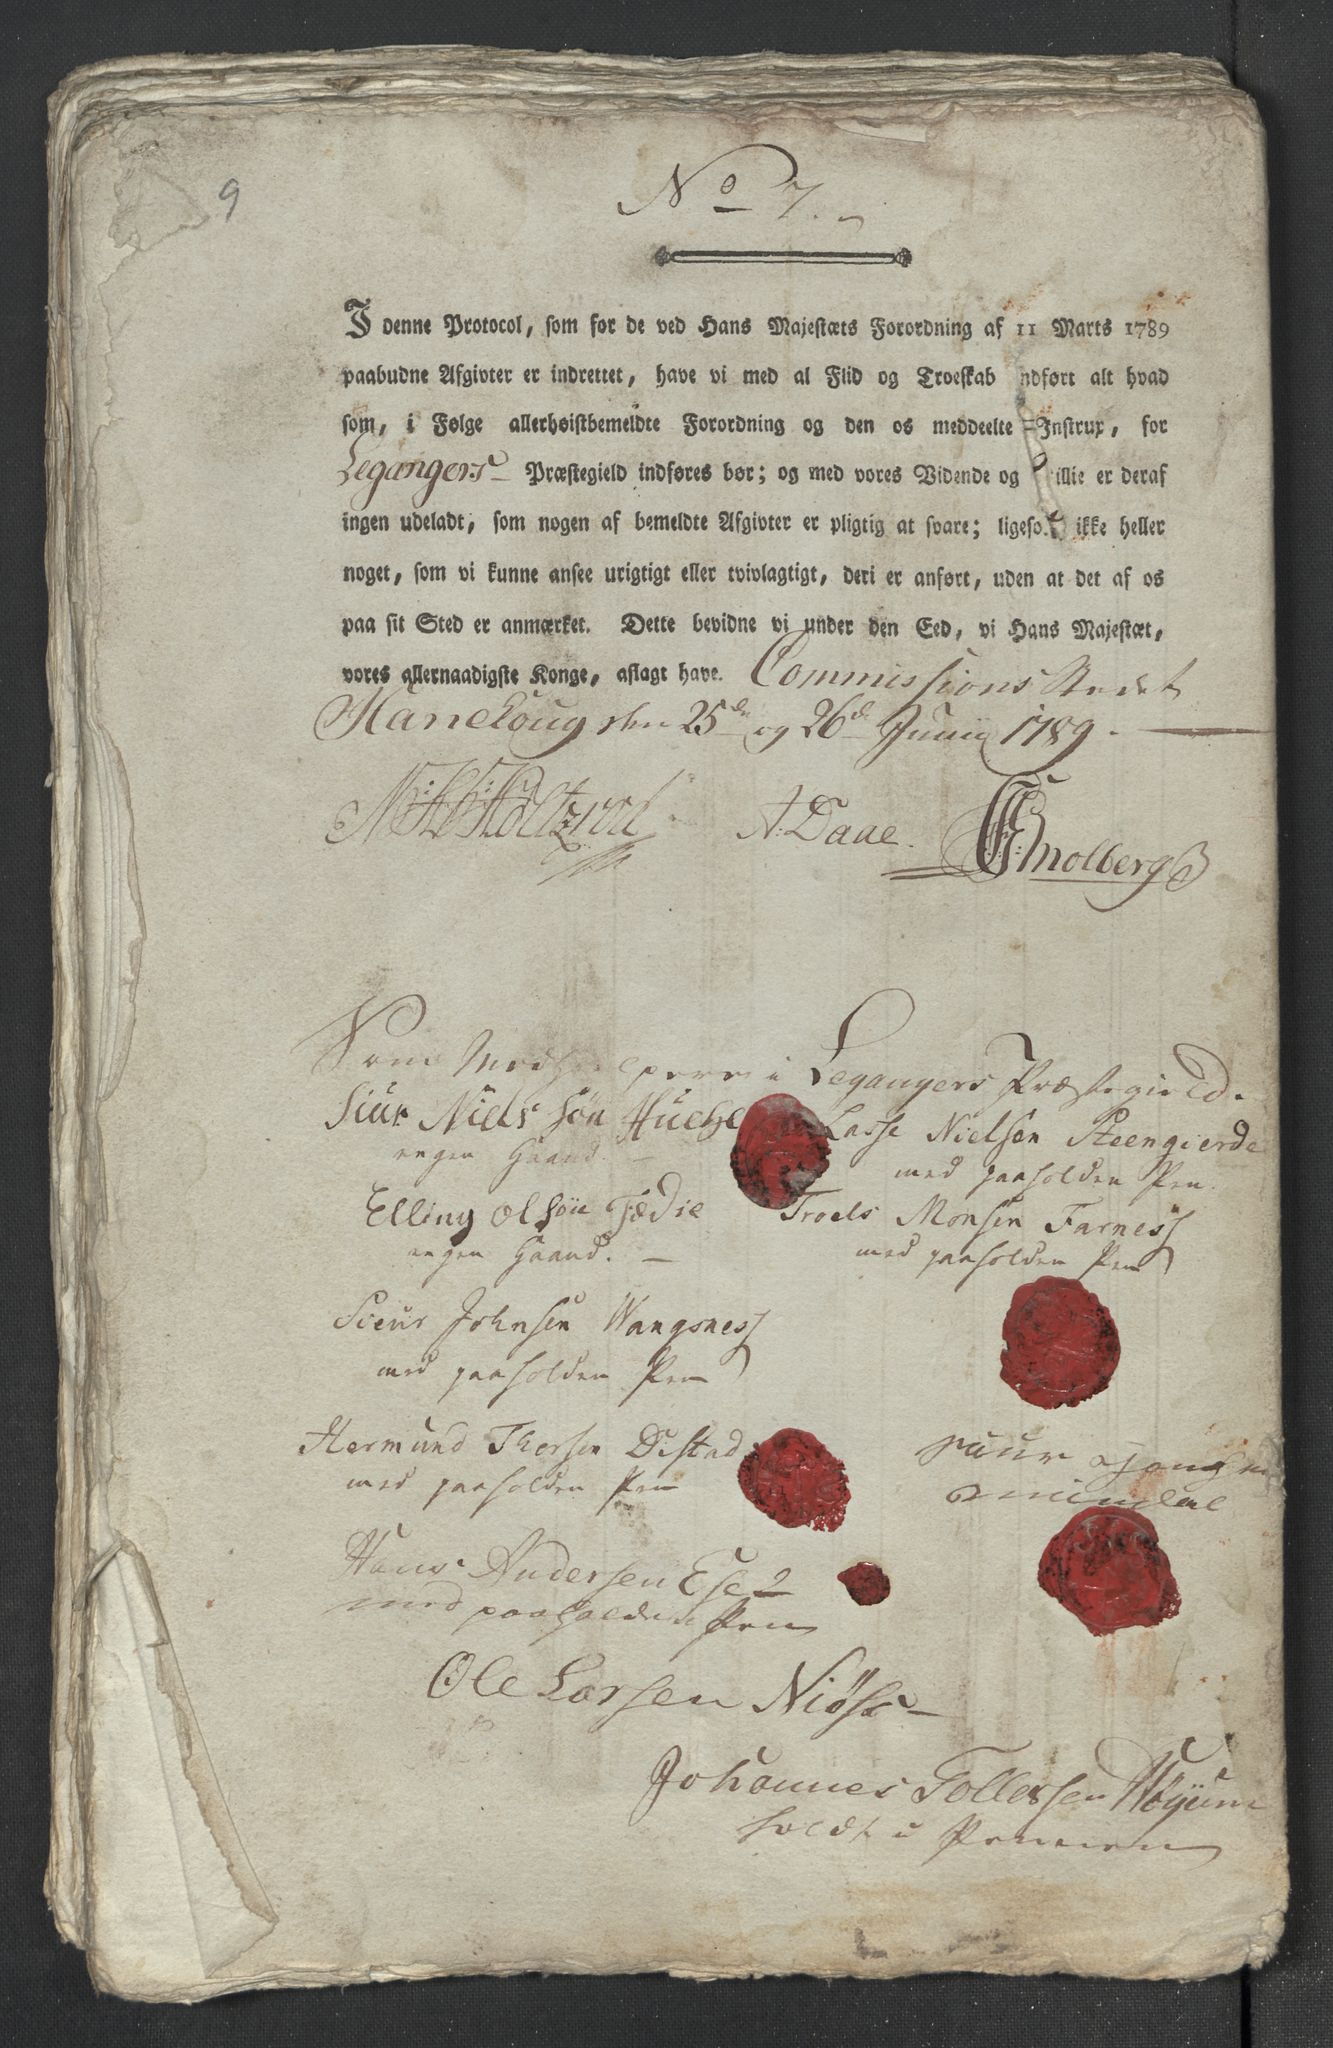 9
No 7.
I denne Protocol, som for de ved Hans Majestæts Forordning af 11 Marts 1789
paabudne Afgivter er indrettet, have vi med al Flid og Troeskab indført alt hvad
som, i Følge allerhøistbemeldte Forordning og den os meddeelte Instrux, for
Legangers Præstegield indføres bør; og med vores Vidende og Villie er deraf
ingen udeladt, som nogen af bemeldte Afgivter er pligtig at svare; ligeso. ikke heller
noget, som vi kunne ansee urigtigt eller tvivlagtigt, deri er anført, uden at det af os
paa sit Sted er anmærket. Dette bevidne vi under den Eed, vi Hans Majestæt,
vores allernaadigste Konge, aflagt have. Commissions Stedet
Hanekoug den 25de og 26de Junii 1789.
A: Daae. Smolberg
Som Medhielpere i Legangers Præstegield.
Siur Niels søn Huehe
egen Haand.
Lasse Nielsen Steengierde
med paaholden Pen.
Elling Olsøn Fædie
egen Haand.
Troels Monsen Farness
med paaholden Pen
Sieur Johnsen Wangsness
med paaholden Pen
Hermund Thorsen Distad
med paaholden Pen
Hans Andersen Ese
med paaholden Pen
Ole Larsen Niøss
Johannes Tollefsen Nøyum
holdt i Pennen